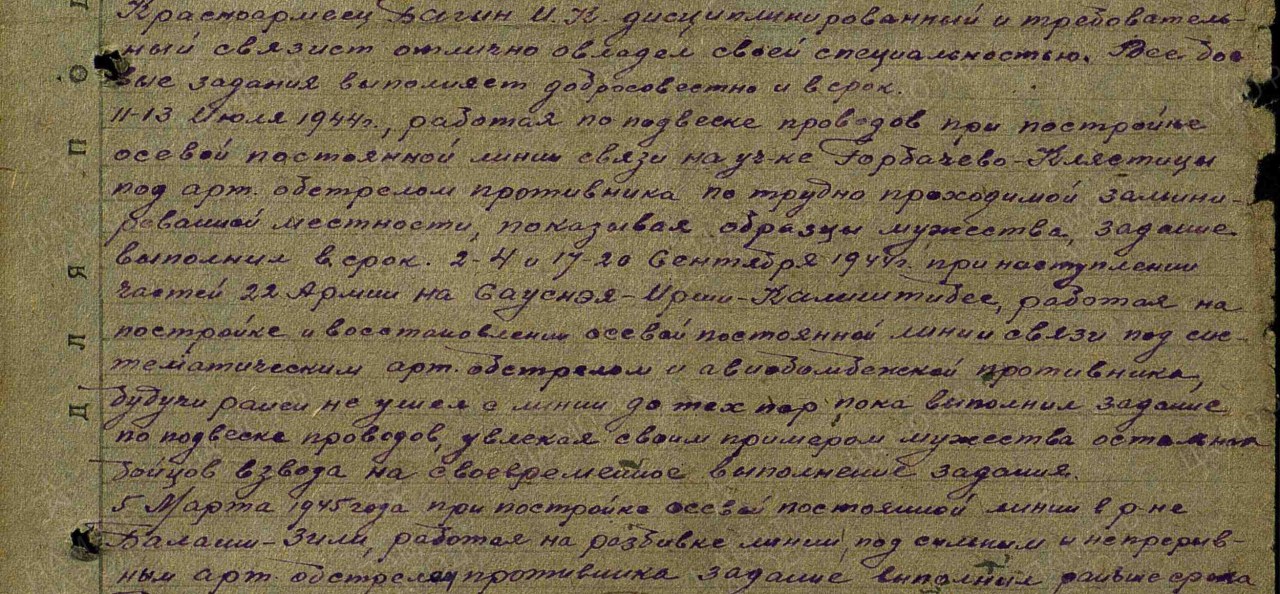 Красноармеец Багин И.К. дисциплинированный и требователь-
ный связист отлично овладел своей специальностью. Все бое
вые задания выполняет добросовестно и в срок.
11-13 Июля 1944г., работая по подвеске проводов при постройке
осевой постоянной линии связи на уч-ке Горбачево-Клястицы
под арт. обстрелом противника по трудно проходимой замини-
рованной местности, показывая образцы мужества, задание
выполнил в срок. 2-4 и 17-20 Сентября 1944г. при наступлении
частей 22 Армии на Саусная-Ирши-Калиштибес, работая на
постройке и восстановлении осевой постоянной линии связи под сис-
тематическим арт. обстрелом и авиобомбежкой противника,
будучи ранен не ушел с линии до тех пор пока выполнил задание
по подвеске проводов, увлекая своим примером мужества остальных
бойцов взвода на своевременное выполнение задания.
5 Марта 1945 года при постройке осевой постоянной линии в р-не
Балаши-Зили, работая на разбивке линии, под сильным и непрерыв-
ным арт. обстрелом противника задание выполнил раньше срока
ДЛЯ ПО